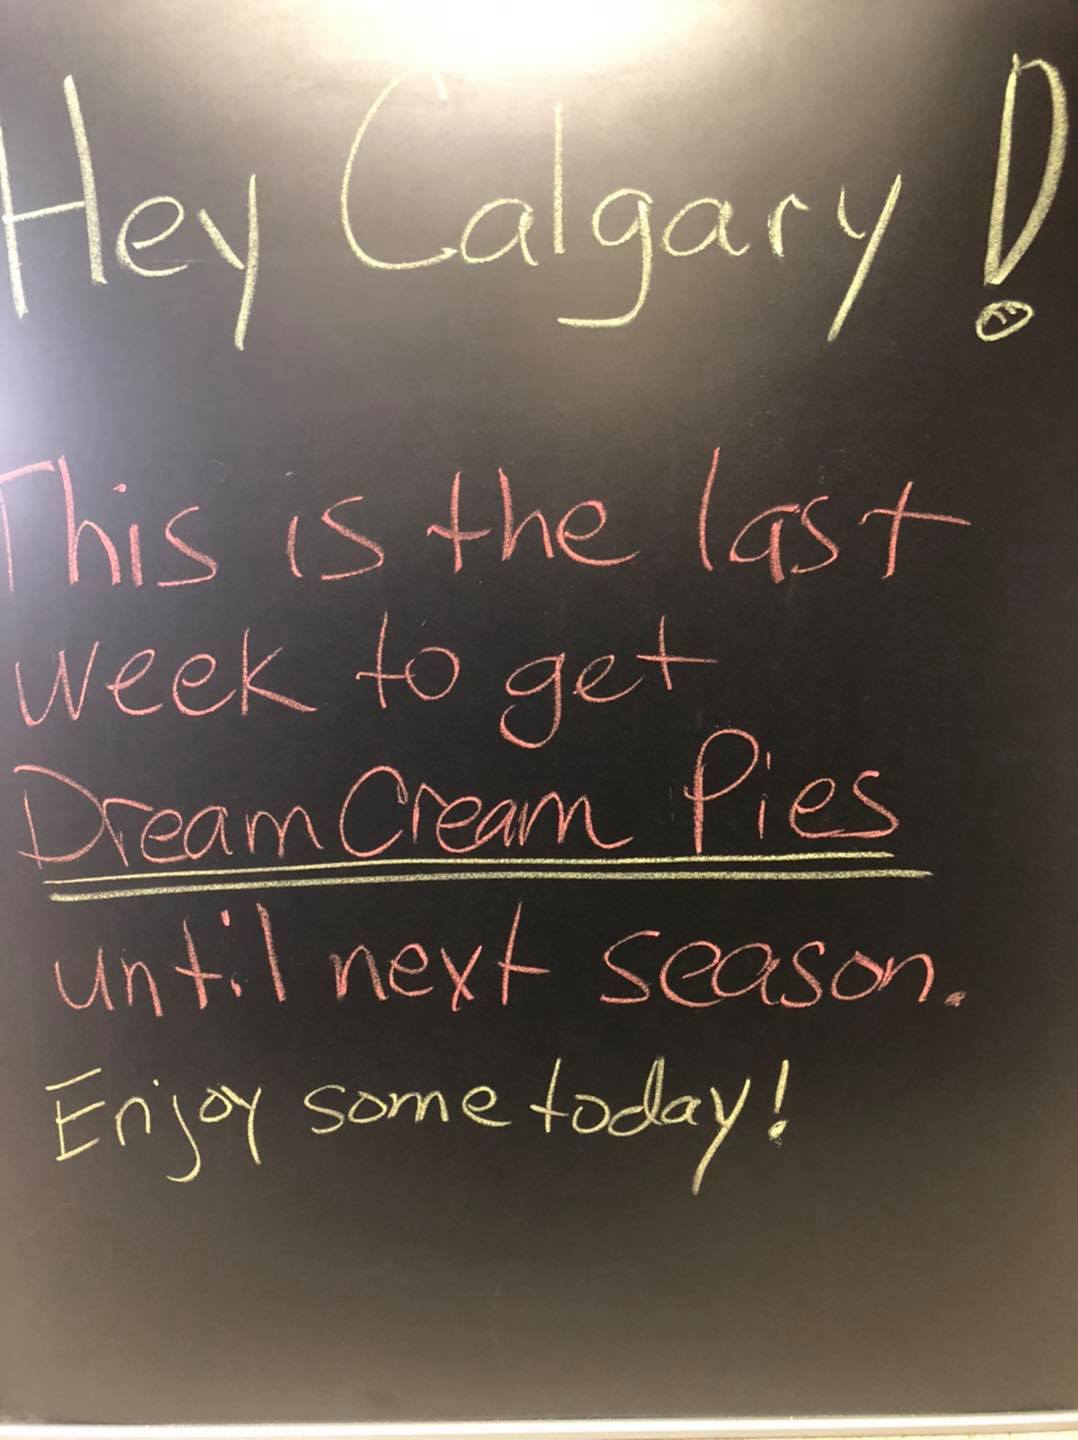 Hey Calgary!
This is the last
week to get
Dream Cream Pies
until next season.
Enjoy some today!